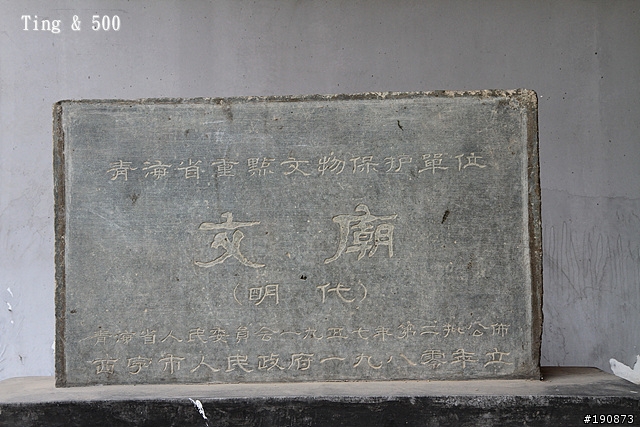 Ting & 500
青海省重點文物保护單位
文廟
(明代)
青海省人民委員会一九五七年第二批公佈
西宁市人民政府一九八零年立
#190873